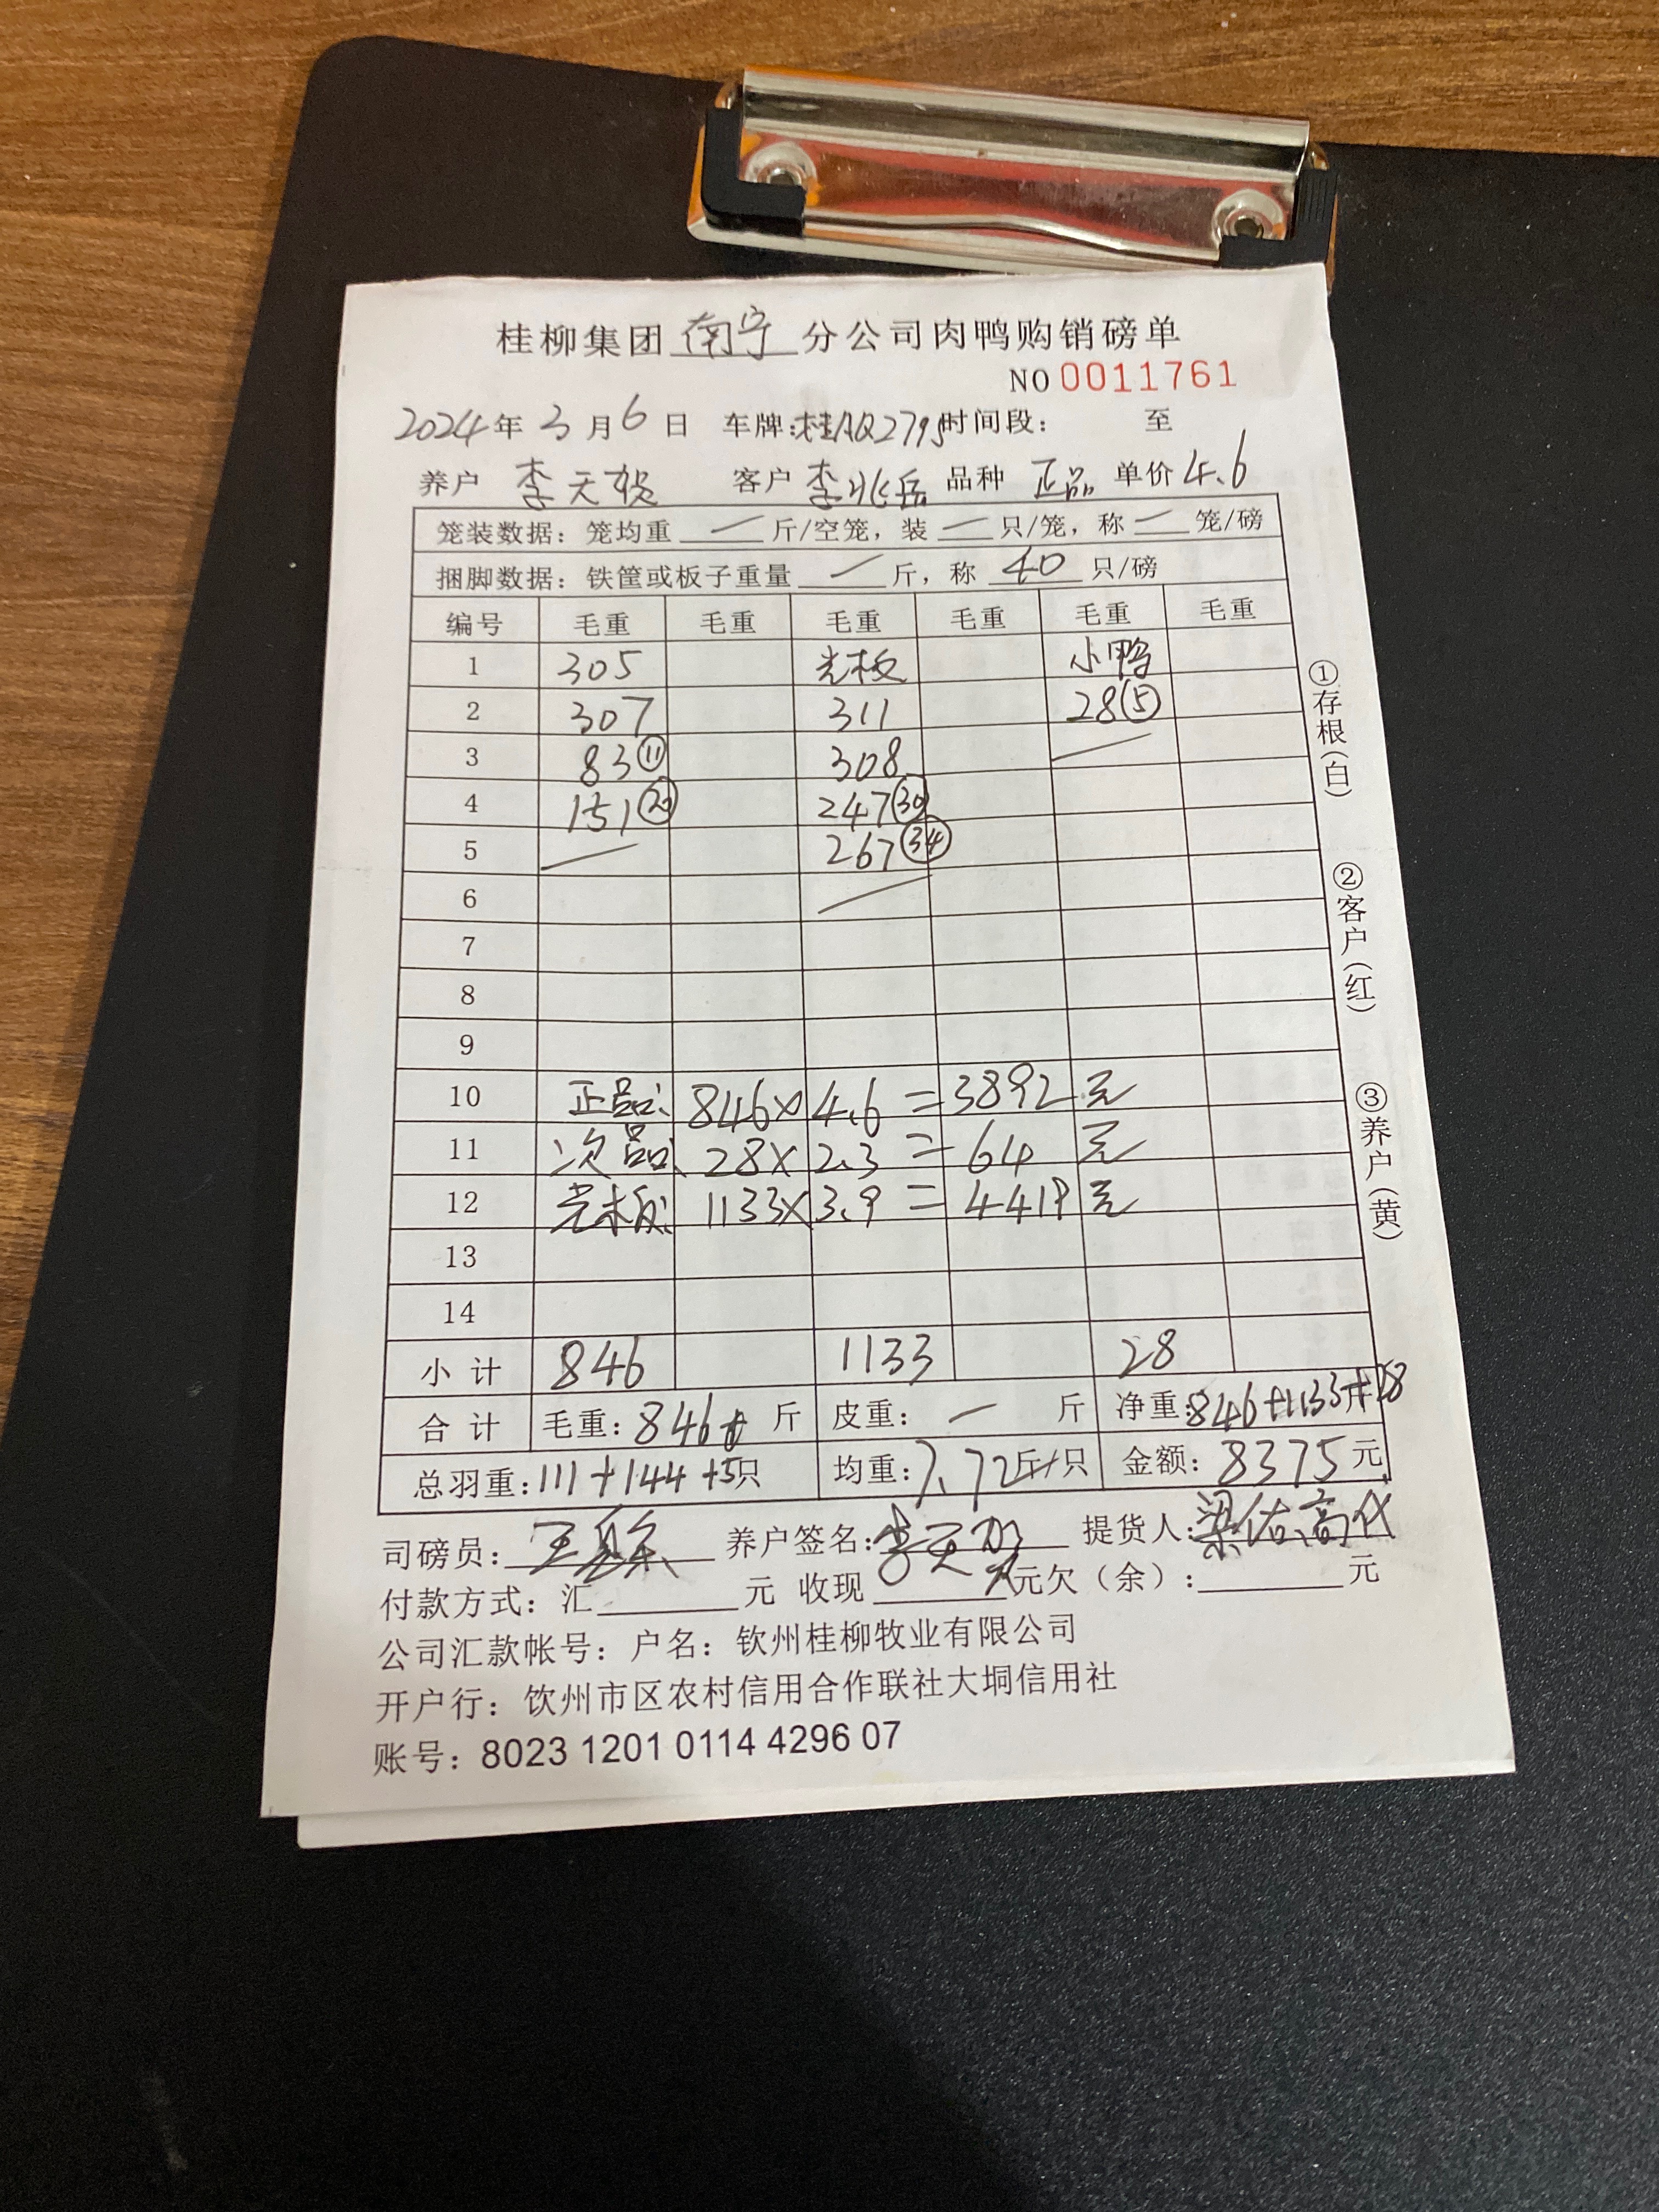 桂柳集团 南宁 分公司肉鸭购销磅单
NO 0011761
2024年 3月 6日 车牌:桂AQ2795 时间段: 至
养户 李天 客户 李兆岳 品种 正品 单价 4.6
笼装数据: 笼均重 — 斤/空笼, 装 — 只/笼, 称 — 笼/磅
捆脚数据: 铁筐或板子重量 — 斤, 称 40 只/磅
编号 毛重 毛重 毛重 毛重 毛重 毛重
1 305 光板 小鸭
2 307 311 28⑤
3 83⑪ 308
4 151⑳ 247㉚
5 — 267㉞
6 —
7
8
9
10 正品: 846×4.6=3892元
11 次品: 28×2.3=64元
12 光板: 1133×3.9=4419元
13
14
小计 846 1133 28
合计 毛重: 846 斤 皮重: — 斤 净重: 846+1133+28
总羽重: 111+144+5只 均重: 7.72斤/只 金额: 8375元
司磅员: 王 养户签名: 李天 提货人: 梁佑高代
付款方式: 汇 元 收现 元欠(余): 元
公司汇款帐号: 户名: 钦州桂柳牧业有限公司
开户行: 钦州市区农村信用合作联社大垌信用社
账号: 8023 1201 0114 4296 07
①存根(白)
②客户(红)
③养户(黄)